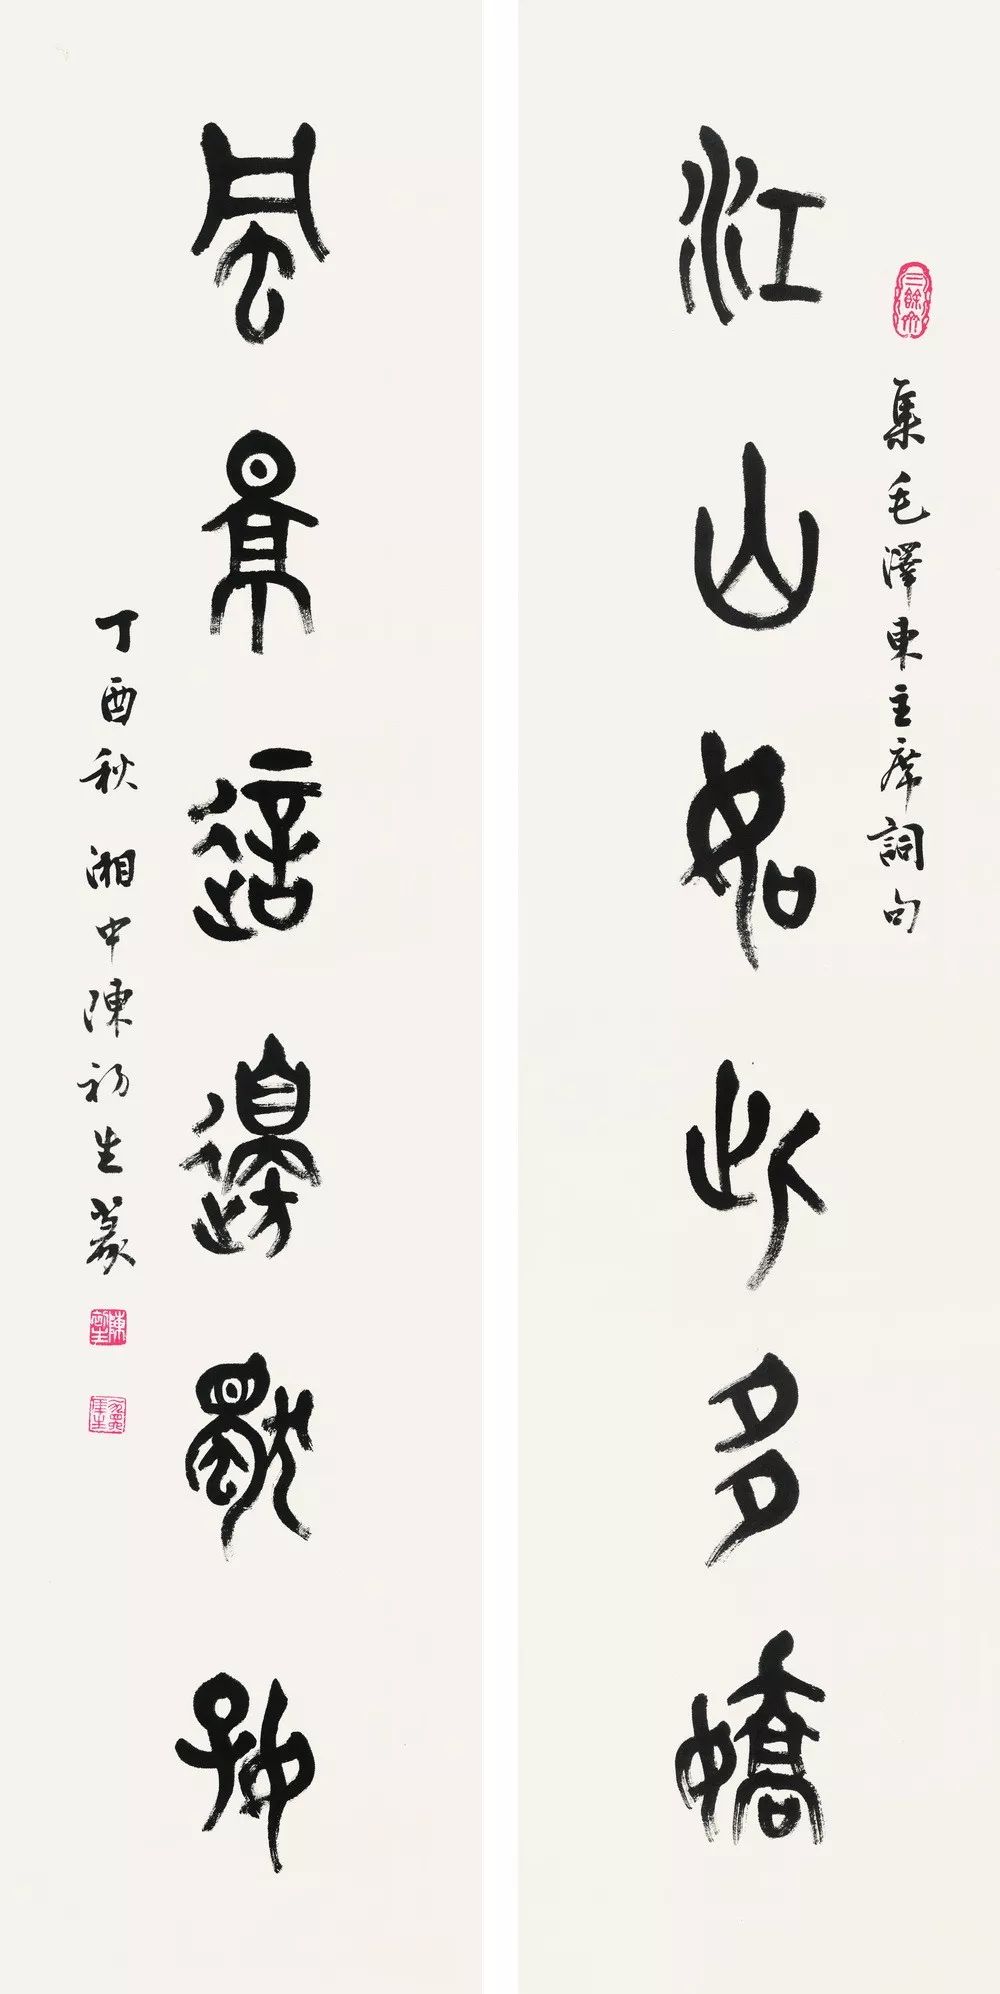 江山如此多嬌
三餘
集毛澤東主席詞句
風景這邊獨好
丁酉秋 湘中陳初生篆
陳初生